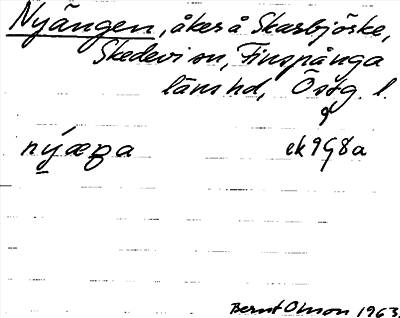 Nyängen, åker å Skarbjörke,
Skedevi sn, Finspånga
läns hd, Östg. l.
nýæꞑa ek 998a
Bernt Olsson 1963.